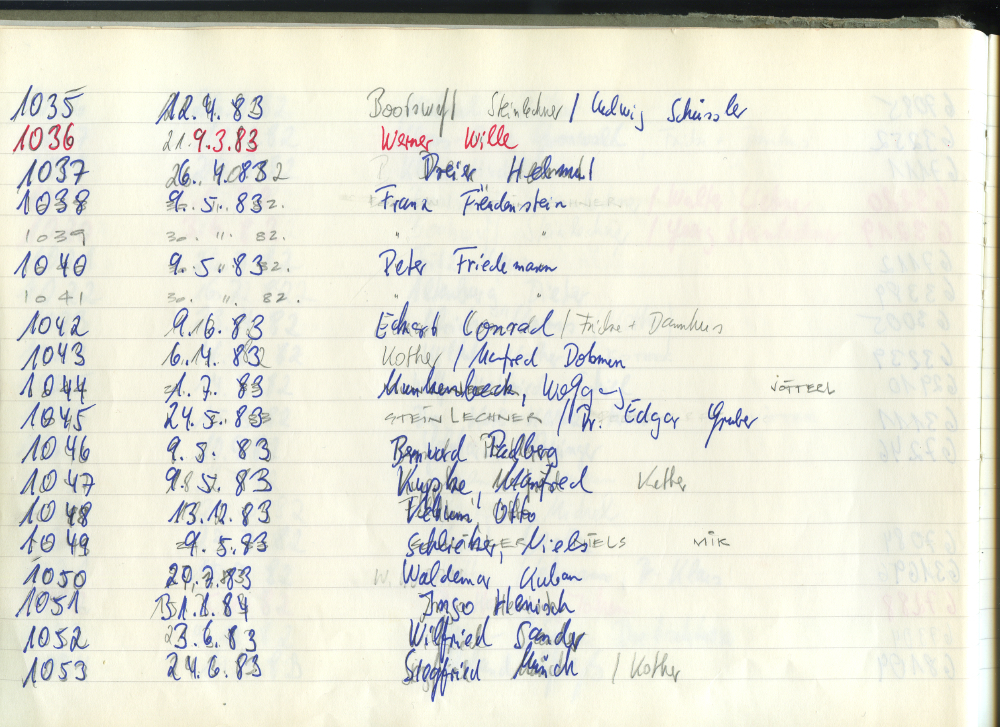 1035 12.4.83 Bootswerft Steinlechner / Ludwig Schüssler
1036 21.9.3.83 Werner Wille
1037 26. 4.83 Dreier Helmut
1038 9. 5. 83 Franz Friedenstein
1039 30. 11. 82. " "
1040 9. 5. 83 Peter Friedemann
1041 30. 11. 82. " "
1042 9.6.83 Eckart Conrad /
1043 6.4.83 Kother / Manfred Dohmen
1044 1.7.83 Munkenbeck, Wolfgang JÖTTERL
1045 24.5.83 STEINLECHNER / Dr. Edgar Gruber
1046 9.8.83 Bernward Padberg
1047 9.5.83 Manfred Kother
1048 13.12.83 Otto
1049 9.5.83 Schleicher, Niels MIK
1050 20.7.83 Waldemar Kuban
1051 31.1.84 Ingo Heinisch
1052 23.6.83 Wilfried Sander
1053 24.6.83 Siegfried Münch / Kother